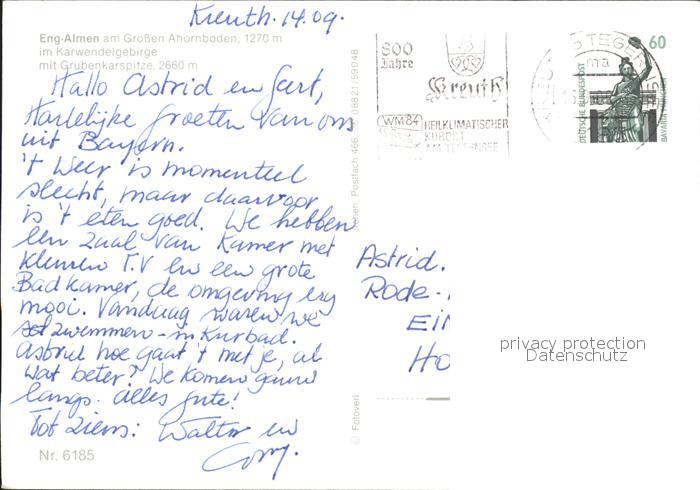 Kreuth. 14.09.
Eng-Almen am Großen Ahornboden, 1270 m
im Karwendelgebirge
mit Grubenkarspitze, 2660 m
Hallo Astrid en Gert,
Hartelijke groeten van ons
uit Bayern.
't Weer is momenteel
slecht, maar daarvoor
is 't eten goed. We hebben
een zaal van Kamer met
kleuren T.V en een grote
Badkamer, de omgeving erg
mooi. Vandaag waren we
zwemmen - in Kurbad.
Astrid hoe gaat 't met je, al
wat beter? We komen gauw
langs. alles gute!
Tot ziens: Walter en
Corry.
Nr. 6185
© Fotoverl
Postfach 466
08821/59048
800
Jahre
Kreuth
WM84
HEILKLIMATISCHER
KURORT
AM TEGERNSEE
60
DEUTSCHE BUNDESPOST
BAVARIA MÜNCHEN
Astrid.
Rode-
Ein
Ho
privacy protection
Datenschutz